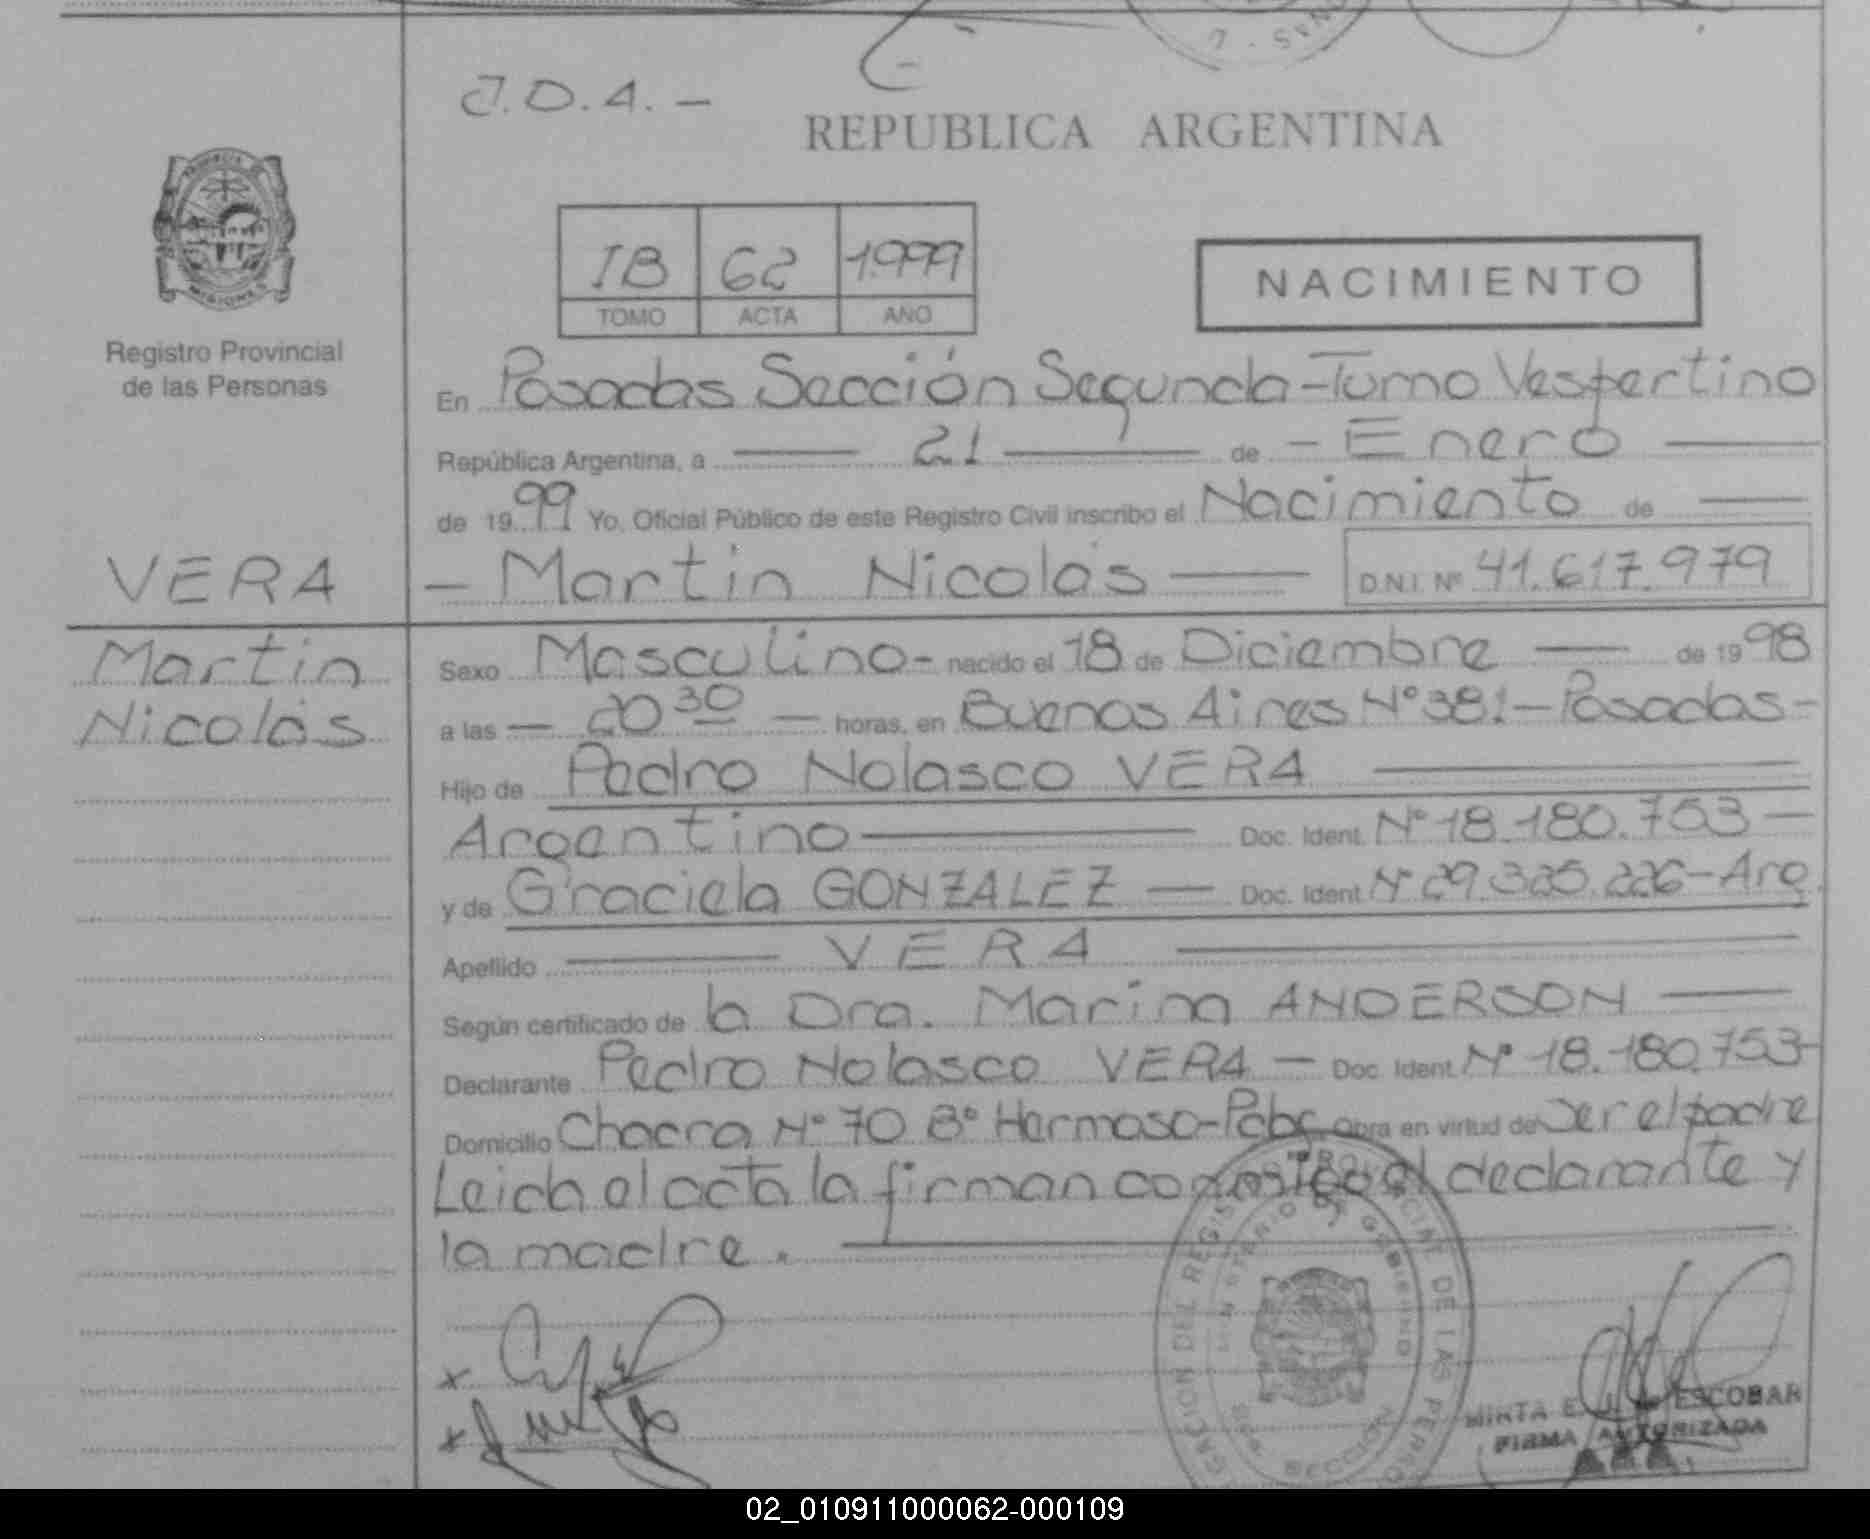 J.D.A. -
REPUBLICA ARGENTINA
IB 62 1.999
TOMO ACTA AÑO
NACIMIENTO
Registro Provincial
de las Personas
En Posadas Sección Segunda - Turno Vespertino
República Argentina, a — 21 — de - Enero —
de 1999 Yo, Oficial Público de este Registro Civil inscribo el Nacimiento de —
VERA
- Martin Nicolás — D.N.I. Nº 41.617.979
Martin
Nicolás
Sexo Masculino - nacido el 18 de Diciembre — de 1998
a las — 20 30 — horas, en Buenos Aires Nº 381 - Posadas -
Hijo de Pedro Nolasco VERA —
Argentino — Doc. Ident. Nº 18.180.753 —
y de Graciela GONZALEZ — Doc. Ident Nº 29.325.226 - Arg.
Apellido — VERA —
Según certificado de la Dra. Marina ANDERSON —
Declarante Pedro Nolasco VERA — Doc. Ident. Nº 18.180.753-
Domicilio Chacra Nº 70 Bº Hermoso - Pdas. Obra en virtud de Ser el padre
Leida el acta la firman conmigo el declarante y
la madre. —
MIRTA E. ESCOBAR
FIRMA AUTORIZADA
02_010911000062-000109